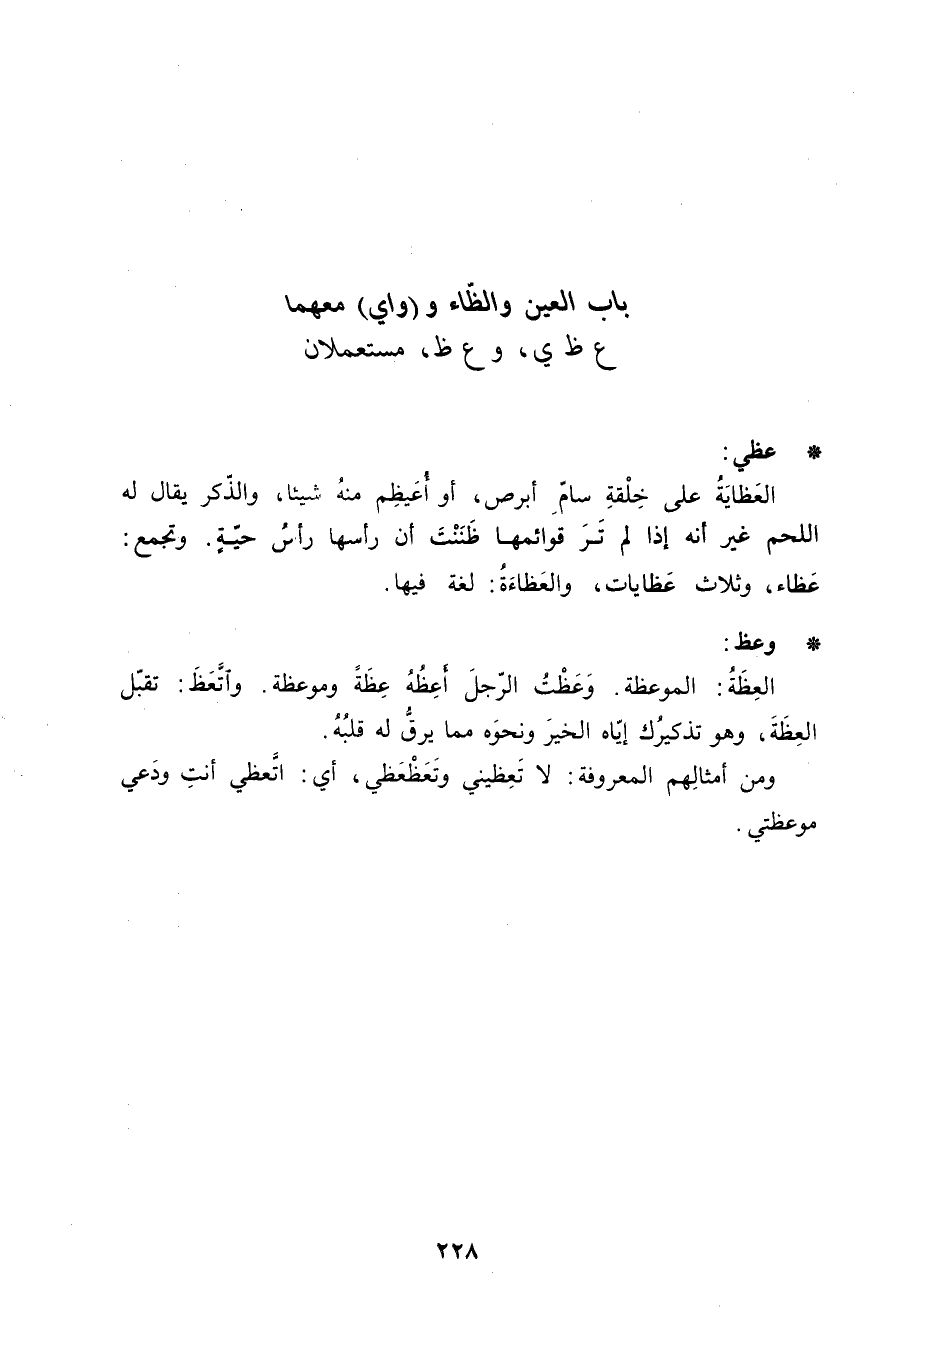 باب العين والظّاء و (واي) معهما
ع ظ ي، و ع ظ، مستعملان
* عظي:
العَظايَةُ على خِلْقةِ سامِّ أبرص، أو أُعَيظِم منهُ شيئا، والذّكر يقال له
اللحم غير أنه إذا لم تَرَ قوائمها ظَنَنْتَ أن رأسها رأسُ حيّةٍ. وتجمع:
عَظاء، وثلاث عَظايات، والعَظاءَةُ: لغة فيها.
* وعظ:
العِظَةُ: الموعظة. وَعَظْتُ الرّجلَ أَعِظُهُ عِظَةً وموعظة. وٱتَّعَظَ: تقبّل
العِظَةَ، وهو تذكيرُك إيّاه الخيرَ ونحوَه مما يرقُّ له قلبُهُ.
ومن أمثالِهم المعروفة: لا تَعِظيني وتَعَظْعَظي، أي: اتَّعظي أنتِ ودَعي
موعظتي.
٢٢٨